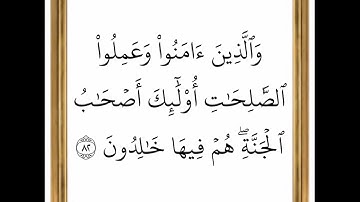 وَٱلَّذِينَ ءَامَنُوا۟ وَعَمِلُوا۟
ٱلصَّـٰلِحَـٰتِ أُو۟لَـٰٓئِكَ أَصْحَـٰبُ
ٱلْجَنَّةِ ۖ هُمْ فِيهَا خَـٰلِدُونَ ٨٢